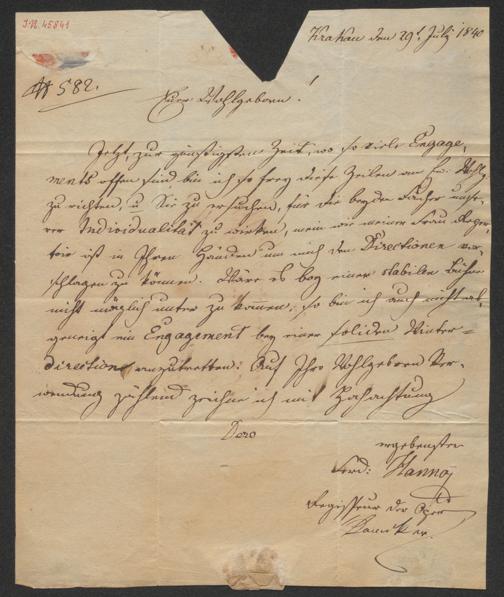 I.N. 45841
Krakau den 29t July 1840
# 582.
Euer Wohlgeboren!
Jetzt, zur günstigsten Zeit, wo so viele Engage-
ments offen sind, bin ich so frey diese Zeilen an Eu. Wohlg.
zu richten, u Sie zu ersuchen, für die beyden Fächer unse-
rer Individualität zu wirken, mein wie meiner Frau Reper-
toir ist in Ihren Händen um mich den Directionen vor-
schlagen zu können. Wäre es bey einer stabilen Bühne
nicht möglich unter zu kommen; so bin ich auch nicht ab-
geneigt ein Engagement bey einer soliden Winter-
direction anzutretten: Auf Ihro Wohlgeboren Ver-
wendung zählend zeichne ich mit Hochachtung
Dero
ergebenster
Ferd: Hannoj
Regisseur der Oper
Komiker.